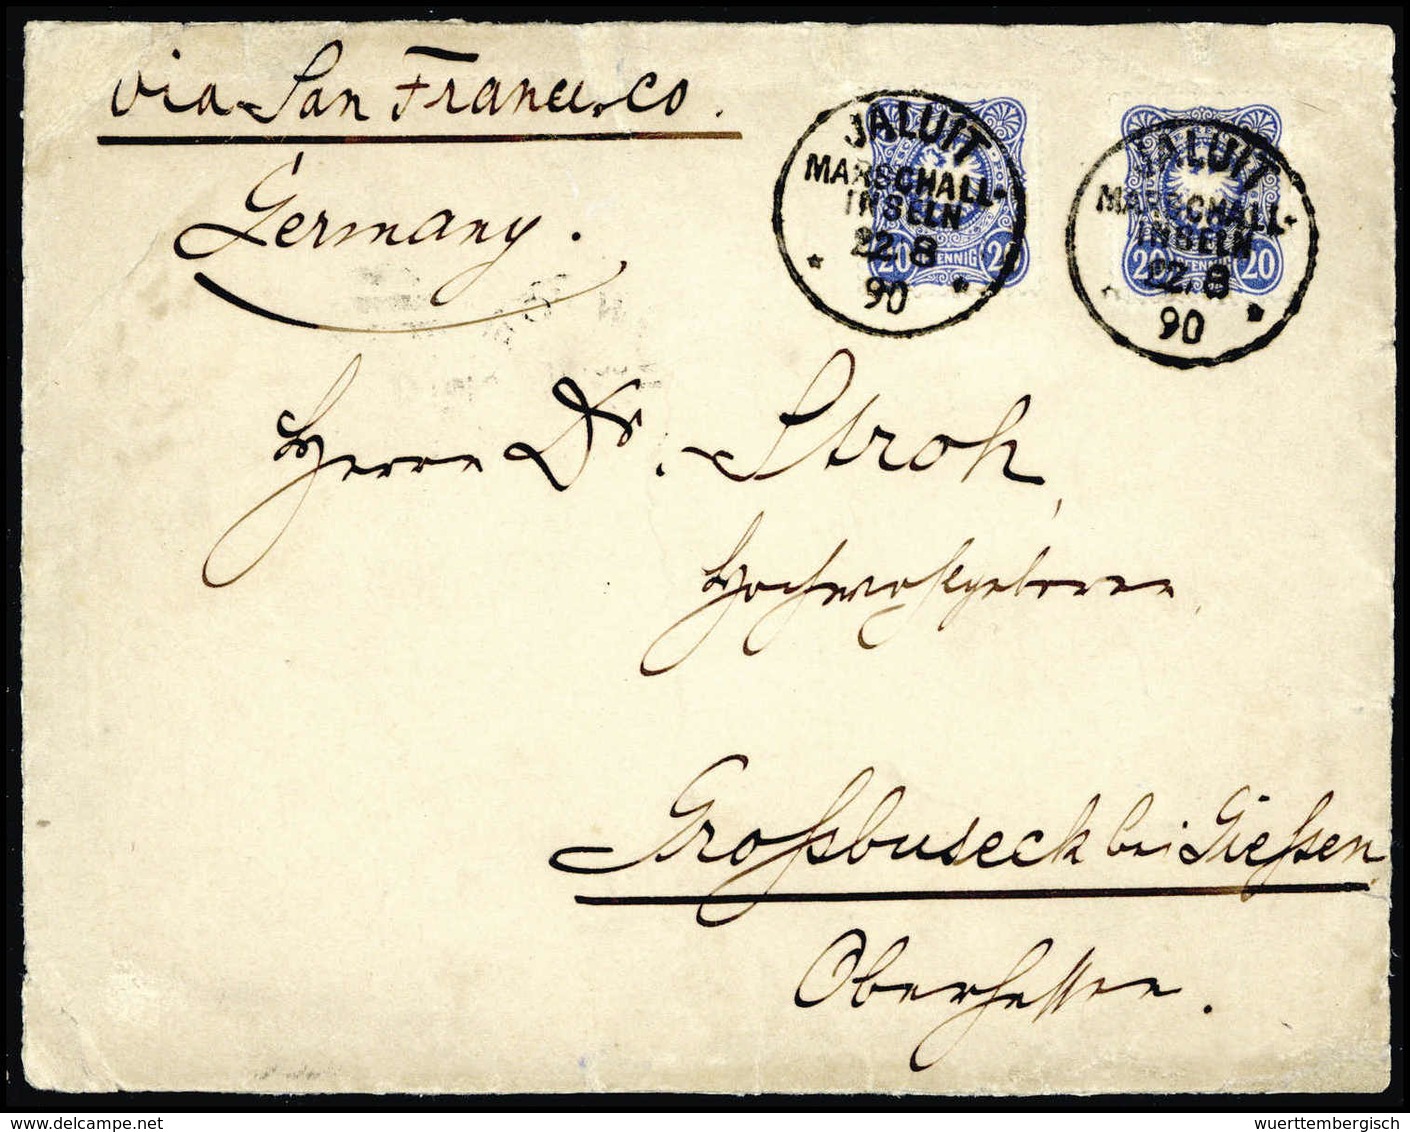 via San Francisco.
Germany.
JALUIT
MARSCHALL-
INSELN
22. 8
90
20 PFENNIG 2
JALUIT
MARSCHALL-
INSELN
22. 8
90
20 PFENNIG 20
Herrn Dr. Stroh,
Hochwohlgeboren
Großbuseck bei Gießen
Oberhessen.
wuerttembergisch